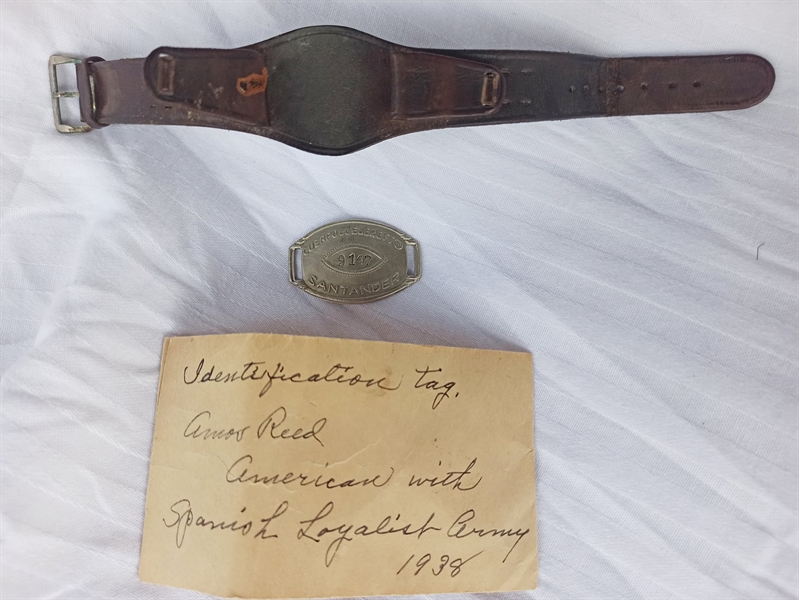 CUERPO DE EJERCITO
9147
SANTANDER
Identification tag.
Amos Reed
American with
Spanish Loyalist Army
1938